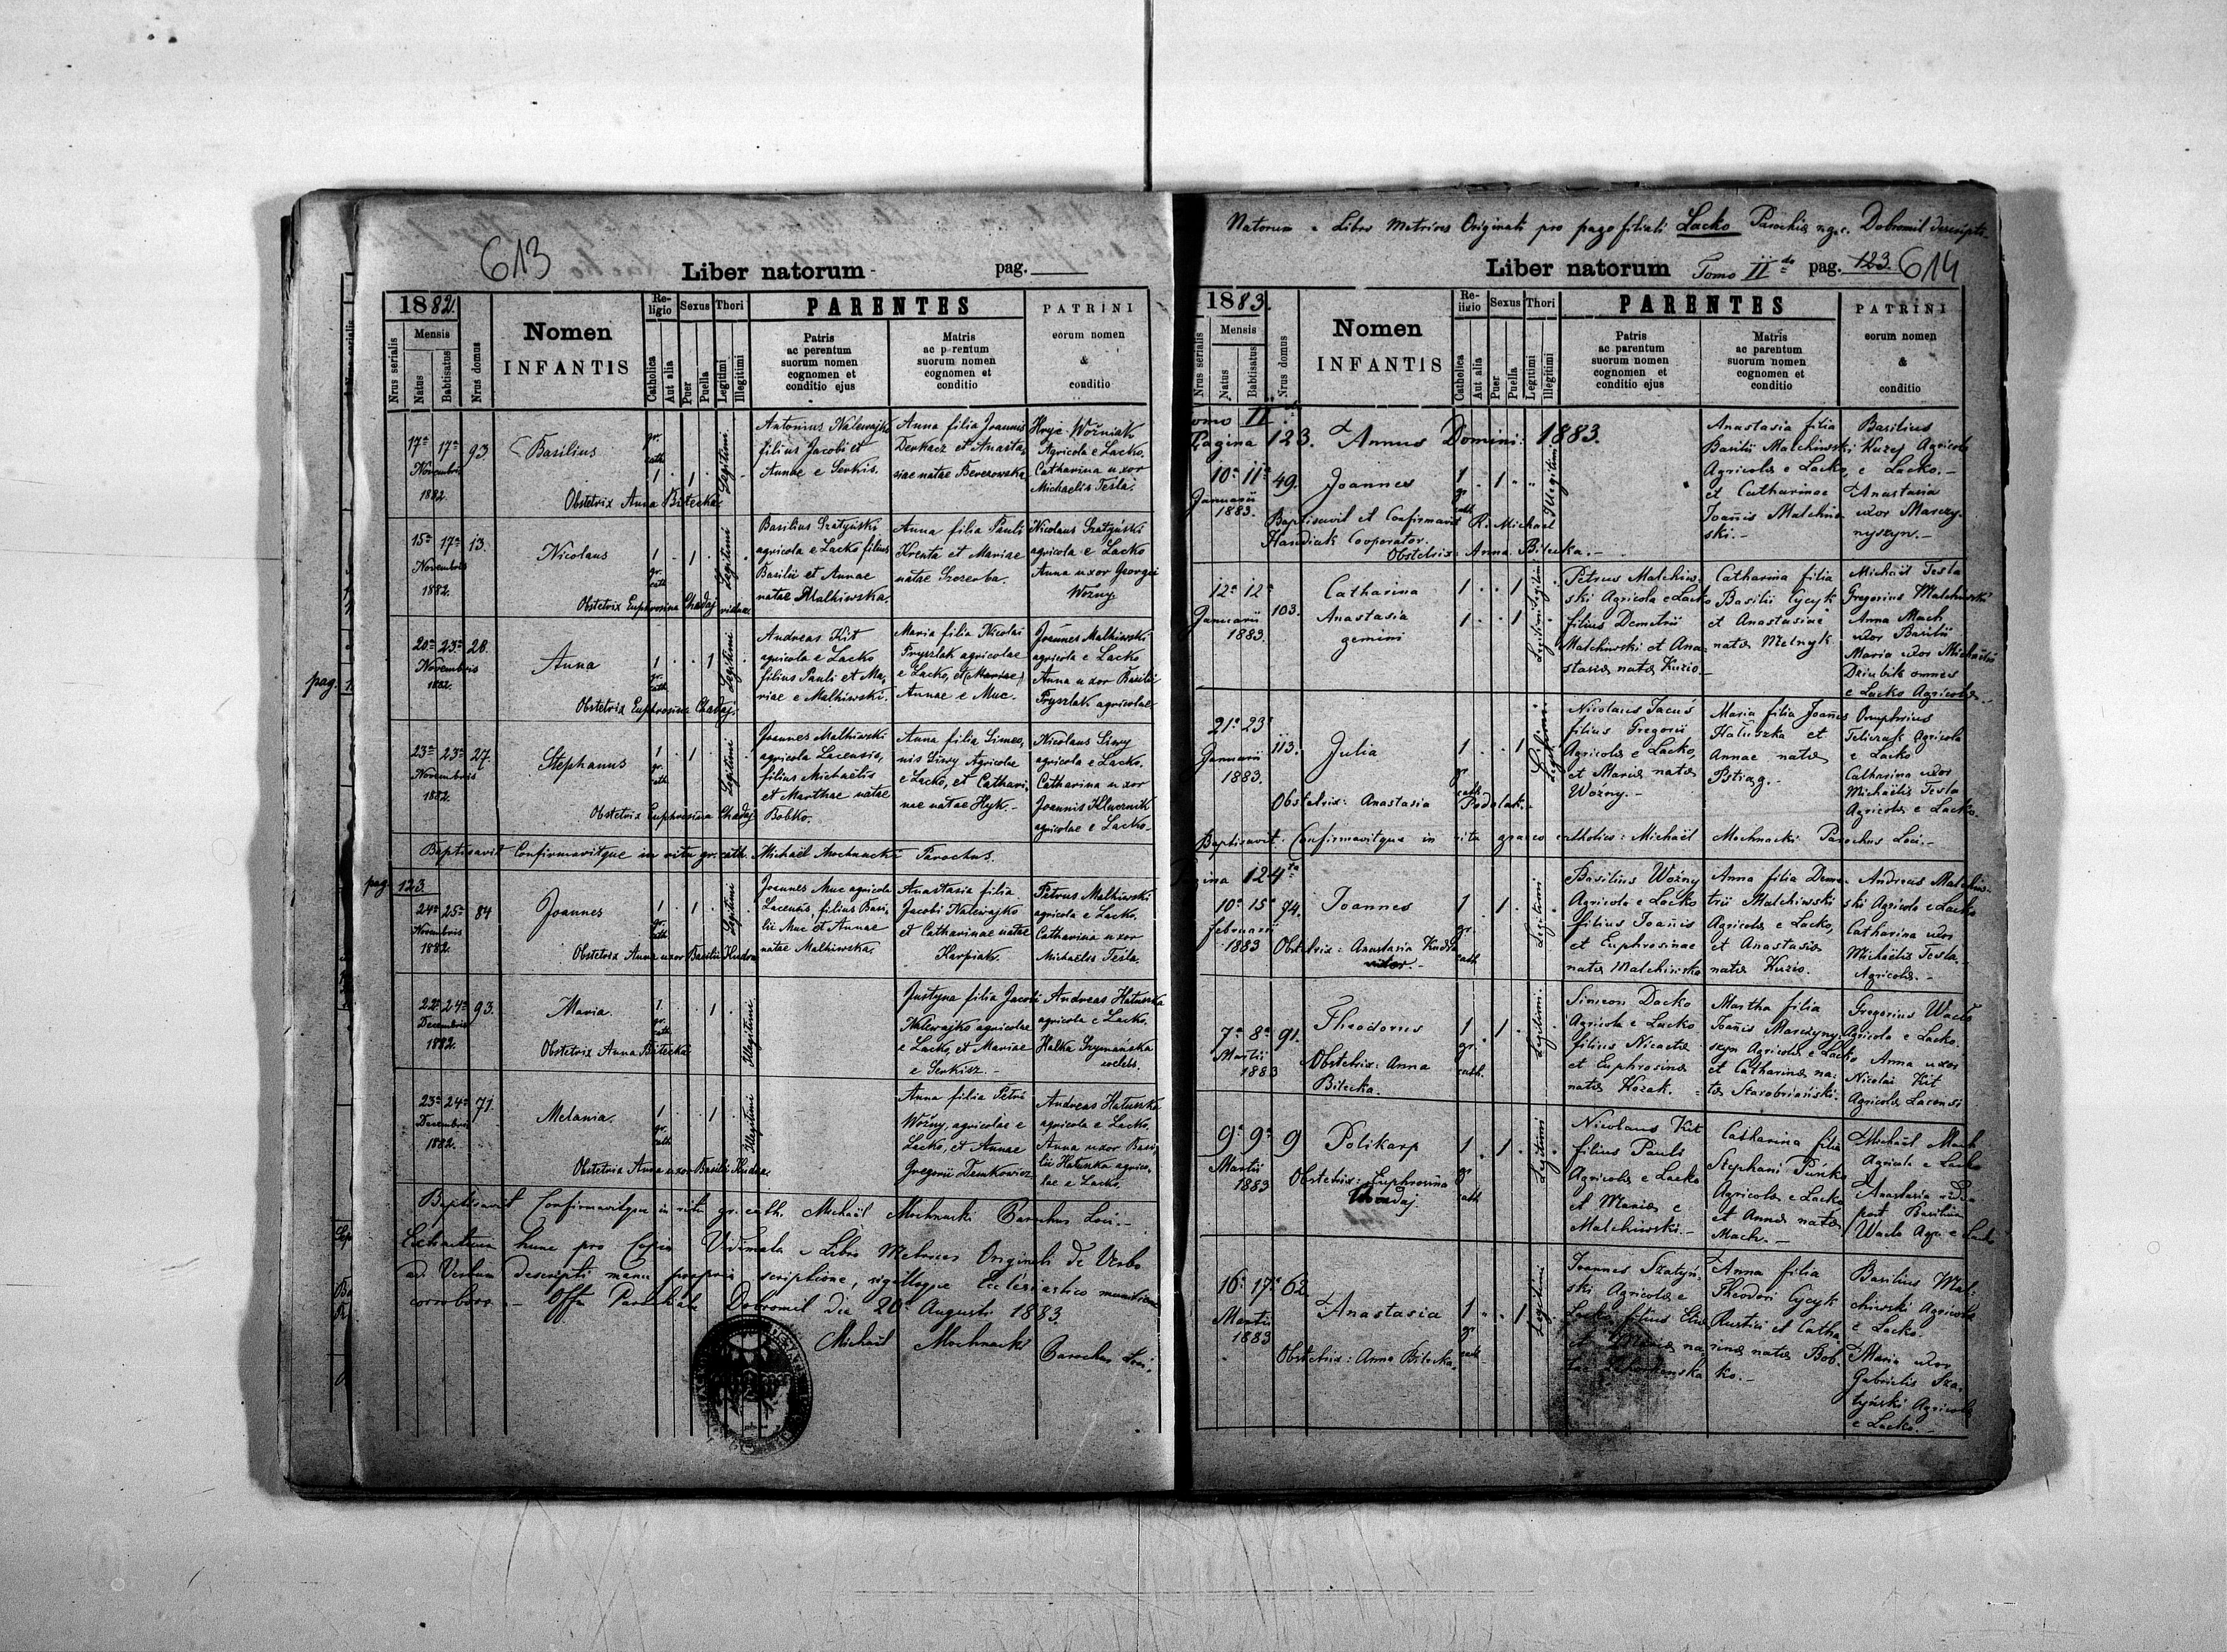 613
Liber natorum
pag.
1882.
Nrus serialis
Mensis
Natus
Babtisatus
Nrus domus
Nomen
INFANTIS
Religio
Catholica
Aut alia
Sexus
Puer
Puella
Thori
Legitimi
Illegitimi
PARENTES
Patris
ac perentum
suorum nomen
cognomen et
conditio ejus
Matris
ac p rentum
suorum nomen
cognomen et
conditio
PATRINI
eorum nomen
&
conditio
17a 17a 93
Novembris
1882.
Basilius
gr.
cath.
1 . 1 .
Legitimi
Antonius Nalewajko
filius Jacobi et
Annae e Serkis.
Anna filia Joannis
Derkacz et Anasta
siae natae Berezowska
Hryc Woźniak
Agricola e Lacko.
Catharina uxor
Michaelis Tesla.
Obstetrix Anna Bilecka.
15a 17a 13.
Novembris
1882.
Nicolaus
1 . 1 .
gr.
cath
Legitimi
Basilius Szatyński
agricola e Lacko filius
Basilii et Annae
natae Malhiwska.
Anna filia Pauli
Krenta et Mariae
natae Szczerba.
Nicolaus Szatyński
agricola e Lacko
Anna uxor Georgii
Woźny.
Obstetrix Euphrosina Chadaj vidua.
20a 23a 28.
Novembris
1882.
Anna
1 . . 1
gr.
cath
Legitimi
Andreas Kit
agricola e Lacko
filius Pauli et Ma,
riae e Malhiwski.
Maria filia Nicolai
Fryszlak agricolae
e Lacko, et Mariae
Annae e Muc.
Joannes Malhiwski
agricola e Lacko
Anna uxor Basilii
Fryszlak agricolae
Obstetrix Euphrosina Chadaj.
23a 23a 27.
Novembris
1882.
Stephanus
1 . 1
gr.
cath
Legitimi
Joannes Malhiwski
agricola Lacensis,
filius Michaelis
et Marthae natae
Bobko.
Anna filia Simeo,
nis Siwy Agricolae
e Lacko, et Cathari,
nae natae Hyk.-
Nicolaus Siwy
agricola e Lacko.
Catharina uxor
Joannis Klucznik
agricolae e Lacko.
Obstetrix Euphrosina Chadaj
Baptisavit Confirmavitque in ritu gr. cath. Michaël Mochnacki Parochus.
pag. 123.
24a 25a 84
Novembris
1882.
Joannes
1 . 1
gr.
cath
Legitimi
Joannes Muc agricola
Lacensis, filius Basi,
lii Muc et Annae
natae Malhiwska.
Anastasia filia
Jacobi Nalewajko
et Catharinae natae
Karpiak.
Petrus Malhiwski
agricola e Lacko.
Catharina uxor
Michaelis Tesla.
Obstetrix Anna uxor Basilii Kudra
22a 24a 93.
Decembris
1882.
Maria.
1 . . 1
gr.
cath
Illegitimi
Justyna filia Jacobi
Nalewajko agricolae
e Lacko, et Mariae
e Serkisz.-
Andreas Hatuszka
agricola e Lacko.
Halka Szymańska
coelebs.
Obstetrix Anna Bilecka
23a 24a 71.
Decembris
1882.
Melania.
1 . . 1
gr.
cath
Illegitimi
Anna filia Petri
Woźny, agricolae e
Lacko, et Annae
Gregorii Denkowicz
Andreas Hatuszka
agricola e Lacko.
Anna uxor Basi,
lii Hatuszka agrico,
lae e Lacko.
Obstetrix Anna uxor Basilii Kudra.
Baptisavit Confirmavitque in ritu gr. cath. Michaël Mochnacki Parochus Loci.-
Extractum hunc pro Copia Vidimata e Libro Metrices Originali de Verbo
ad Verbum descripti manu propria scriptione, sigilloque Ecclesiastico
corroboro.- Offm Parochiale Dobromil die 20. Augusti 1883.
Michaël Mochnacki
Parochus Loci.
Natorum e Libro Metrices Originali pro pago filiali Lacko Parochia r.g.c. Dobromil descripti
Liber natorum Tomo IIdo pag. 123. 614
1883.
Nrus serialis
Mensis
Natus
Babtisatus
Nrus domus
Nomen
INFANTIS
Religio
Catholica
Aut alia
Sexus
Puer
Puella
Thori
Legitimi
Illegitimi
PARENTES
Patris
ac parentum
suorum nomen
cognomen et
conditio ejus
Matris
ac parentum
suorum nomen
cognomen et
conditio
PATRINI
eorum nomen
&
conditio
Tomo II
Pagina 123. Annus Domini: 1883.
10a 11a 49.
Januarii
1883.
Joannes
1 . 1 " "
gr
cath
Illegitimi
Anastasia filia
Basilii Malchiwski
Agricolae e Lacko,
et Catharinae
Joannis Malchiw
ski.-
Basilius
Kuzej Agricola
e Lacko.-
Anastasia
uxor Marczy
nyszyn.-
Baptisavit et Confirmavit R. Michael
Handiak Cooperator.
Obstetrix: Anna Bilecka.-
12a 12a 103.
Januarii
1883.
Catharina
Anastasia
gemini
1 . . 1
1 . . 1
Legitimi
Petrus Malchiw
ski Agricola e Lacko
filius Demetrii
Malchiwski et Ana-
stasiae natae Kuzio.
Catharina filia
Basilii Cycyk
et Anastasiae
natae Melnyk.
Michaël Tesla
Gregorius Malchiwski
Anna Mach
uxor Basilii
Maria uxor Michaëlis
Dziubik omnes
e Lacko Agricolae.-
21a 23a 113.
Januarii
1883.
Julia
1 . . 1
gr
cath
Legitimi
Nicolaus Jacuś
filius Gregorii
Agricolae e Lacko,
et Mariae natae
Woźny.-
Maria filia Joannis
Hatuszka et
Annae natae
Pstrąg.-
Onuphrius
Teliczak Agricola
e Lacko
Catharina uxor
Michaëlis Tesla
Agricolae e Lacko.
Obstetrix: Anastasia Podolak.-
Baptisavit Confirmavitque in ritu graeco catholico: Michaël Mochnacki Parochus Loci.-
Pagina 124ta
10a 15a 74.
Februarii
1883
Joannes
1 . 1 .
gr.
cath.
Legitimi
Basilius Woźny
Agricola e Lacko
filius Joannis
et Euphrosinae
natae Malchiwska
Anna filia Deme-
trii Malchiwski
Agricolae e Lacko,
et Anastasiae
natae Kuzio.
Andreas Malchiw-
ski Agricola e Lacko
Catharina uxor
Michaëlis Tesla.
Agricolae.-
Obstetrix: Anastasia Kudła
7a 8a 91.
Martii
1883
Theodorus
1 . 1 .
gr.
cath.
Legitimi
Simeon Dacko
Agricola e Lacko
filius Nicetae
et Euphrosinae
natae Kozak.
Martha filia
Joannis Marczyny-
szyn Agricolae e Lacko
et Catharinae na-
tae Starobriański.
Gregorius Wacło
Agricola e Lacko.
Anna uxor
Nicolai Kit
Agricolae Lacensi
Obstetrix: Anna
Bilecka.
9a 9a 9
Martii
1883
Polikarp
1 . 1 .
gr
cath
Legitimi
Nicolaus Kit
filius Pauli
Agricolae e Lacko
et Mariae e
Malchiwski.-
Catharina filia
Stephani Puńko
Agricolae e Lacko
et Annae natae
Mach.-
Michaël Mach
Agricola e Lacko
Anastasia vidua
post Basilium
Wacło Agr. e Lacko
Obstetrix: Euphrosina
Chadaj.
16a 17a 62.
Martii
1883
Anastasia
1 . . 1
gr
cath
Legitimi
Joannes Szatyń-
ski Agricola e
Lacko filius
et Mariae na-
tae
Anna filia
Theodori Cycyk
Rustici et Catha-
rinae natae Bob-
ko.-
Basilius Mal-
chiwski Agricola
e Lacko.
Maria uxor
Gabrielis Sza-
tyński Agricolae
e Lacko.-
Obstetrix: Anna Bilecka.